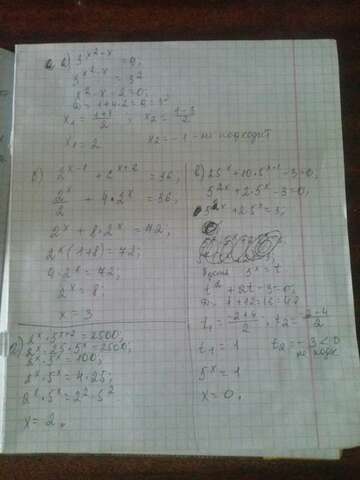 а) 3^(x²-x) = 9;
3^(x²-x) = 3²
x²-x-2=0;
D=1+4·2=9=3²
x₁ = (1+3)/2 ; x₂ = (1-3)/2
x₁ = 2 x₂ = -1 - не подходит
2^(x-1) + 2^(x+2) = 36;
2^x/2 + 4·2^x = 36;
2^x + 8·2^x = 72;
2^x(1+8) = 72;
9·2^x = 72;
2^x = 8;
x = 3
в) 25^x+10·5^(x-1)-3=0;
5^(2x)+2·5^x-3=0;
5^(2x)+2·5^x=3;
5^x=t
t²+2t-3=0;
D=4+12=16=4²
t₁ = (-2+4)/2 ; t₂ = (-2-4)/2
t₁ = 1 t₂ = -3<0
не подх
5^x = 1
x = 0.
г) 2^x·5^(x+2)=2500;
2^x·25·5^x=2500;
2^x·5^x=100;
2^x·5^x=4·25;
2^x·5^x=2²·5²
x=2.